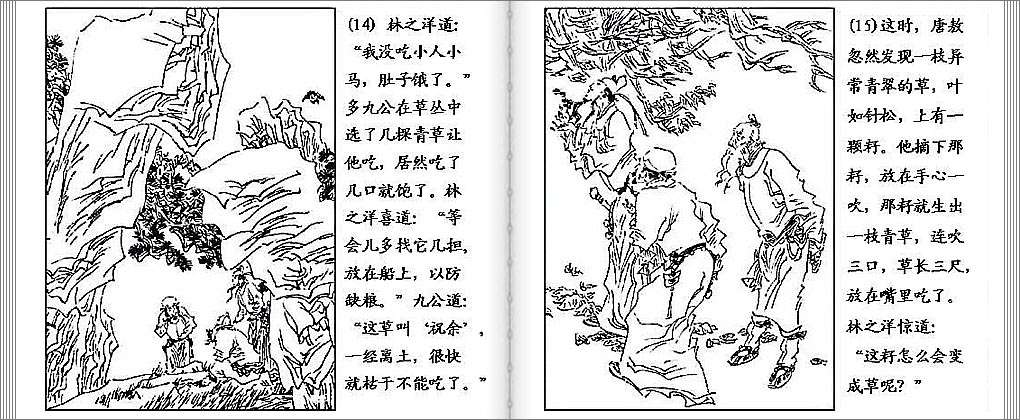 (14) 林之洋道:
“我没吃小人小
马，肚子饿了。”
多九公在草丛中
选了几棵青草让
他吃，居然吃了
几口就饱了。林
之洋喜道: “等
会儿多找它几担，
放在船上，以防
缺粮。”九公道:
“这草叫‘祝余’，
一经离土，很快
就枯干不能吃了。”
(15)这时，唐敖
忽然发现一枝异
常青翠的草，叶
如针松，上有一
颗籽。他摘下那
籽，放在手心一
吹，那籽就生出
一枝青草，连吹
三口，草长三尺，
放在嘴里吃了。
林之洋惊道:
“这籽怎么会变
成草呢？”